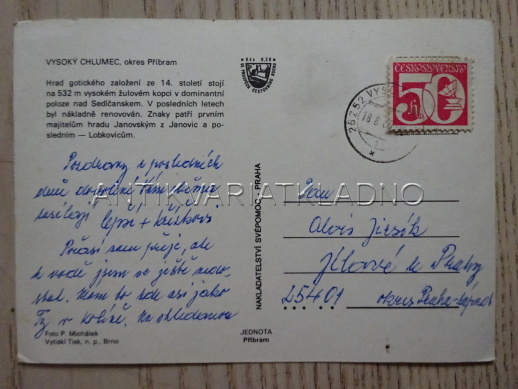 VYSOKÝ CHLUMEC, okres Příbram
Hrad gotického založení ze 14. století stojí
na 532 m vysokém žulovém kopci v dominantní
poloze nad Sedlčanskem. V posledních letech
byl nákladně renovován. Znaky patří prvním
majitelům hradu Janovským z Janovic a po-
sledním — Lobkovicům.
Pozdravy z posledních
dnů
Počasí nám přeje, ale
k vodě jsem se ještě nedo-
stal. Mám to zde asi jako
Ty v
Foto P. Michálek
Vytiskl Tisk, n. p., Brno
NAKLADATELSTVÍ SVÉPOMOC - PRAHA
JEDNOTA
Příbram
ČESKOSLOVENSKO
50
h
262 52 VYS
18.8
Pan
Alois
Jílové u Prahy
254 01 okres Praha-západ
ANTIKVARIATKLADNO